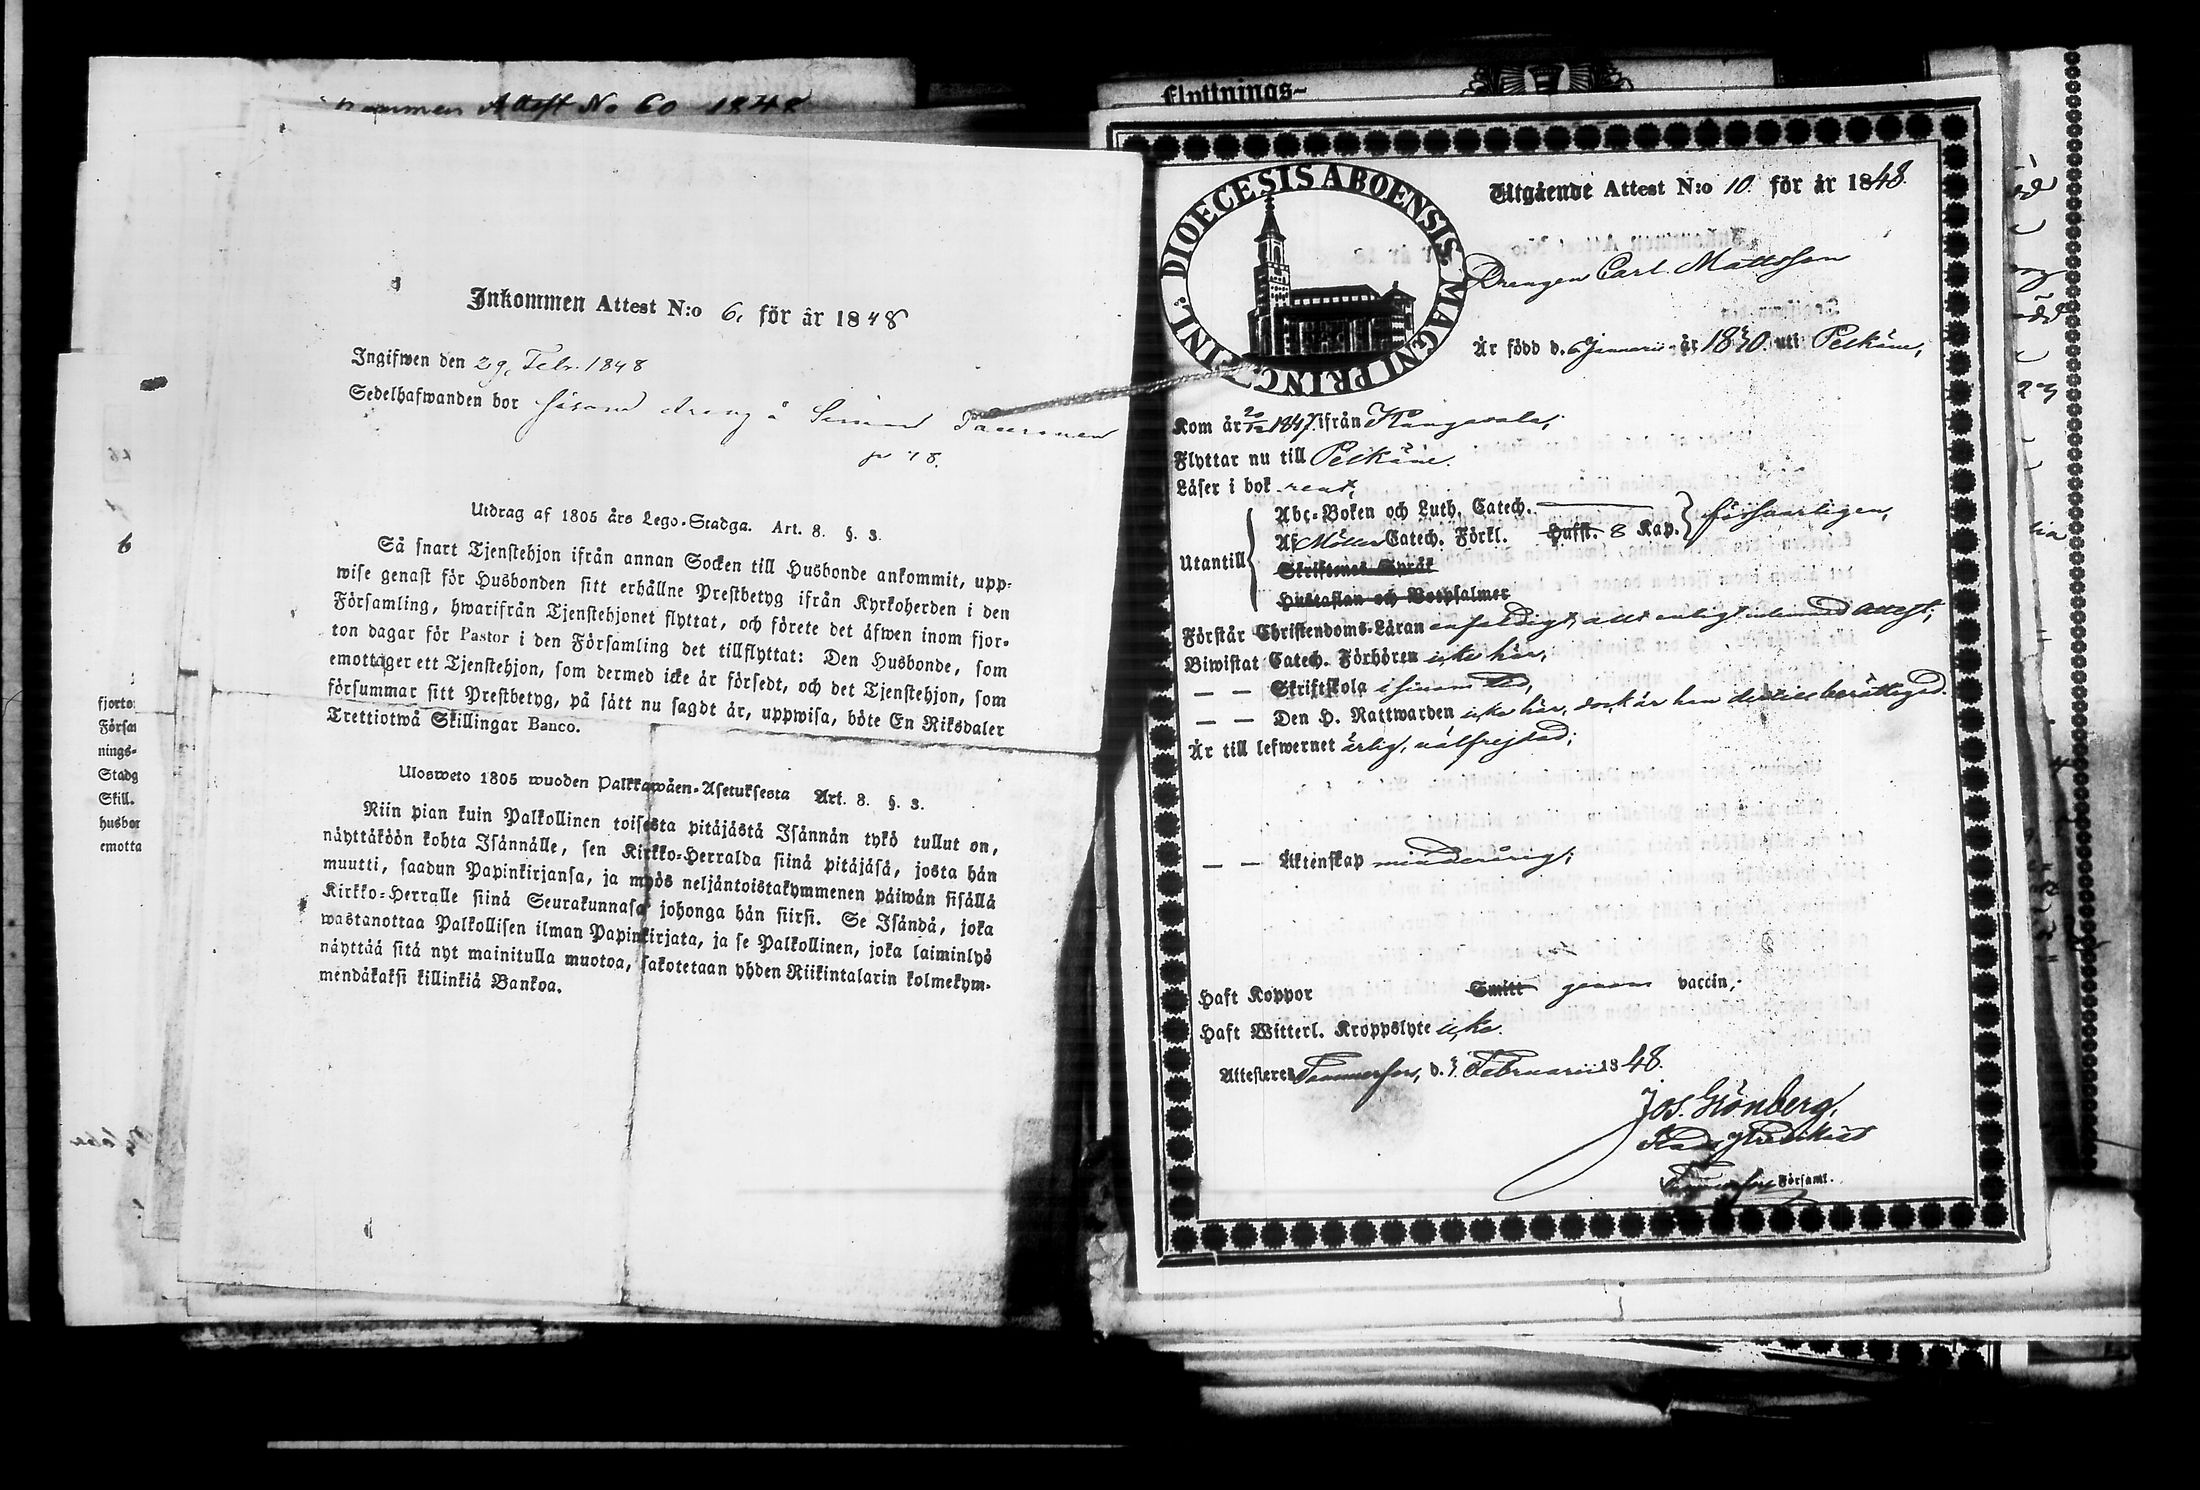 Attest No 60 1848
Inkommen Attest N:o 6, för år 1848
Ingifwen den 29, Febr. 1848
Sedelhafwanden bor såsom dreng å
Utdrag af 1805 års Lego-Stadga. Art. 8. §. 3.
Så snart Tjenstehjon ifrån annan Socken till Husbonde ankommit, upp-
wise genast för Husbonden sitt erhållne Prestbetyg ifrån Kyrkoherden i den
Församling, hwarifrån Tjenstehjonet flyttat, och förete det äfwen inom fjor-
ton dagar för Pastor i den Församling det tillflyttat: Den Husbonde, som
emottager ett Tjenstehjon, som dermed icke är försedt, och det Tjenstehjon, som
försummar sitt Prestbetyg, på sätt nu sagdt är, uppwisa, böte En Riksdaler
Trettiotwå Skillingar Banco.
Ulosweto 1805 wuoden Palkkawäen-Asetuksesta Art. 8. §. 3.
Niin pian kuin Palkollinen toisesta pitäjästä Isännän tykö tullut on,
näyttäköön kohta Isännälle, sen Kirkko-Herralda siinä pitäjäsä, josta hän
muutti, saadun Papinkirjansa, ja myös neljäntoistakymmenen päiwän sisällä
Kirkko-Herralle siinä Seurakunnasa johonga hän siirsi. Se Isändä, joka
wastanottaa Palkollisen ilman Papinkirjata, ja se Palkollinen, joka laiminlyö
näyttää sitä nyt mainitulla muotoa, sakotetaan yhden Riikintalarin kolmekym-
mendäkaksi killinkiä Bankoa.
fjorto
Försa
nings-
Stadg
Skill.
husbor
emotta
Flyttnings-
DIOECESIS ABOENSIS MAGNI PRINC. FINL.
Utgående Attest N:o 10. för år 1848.
Drengen Carl Mattsson
Är född d. 6 Januarii år 1830. uti Pelkäne,
Kom år 1847. ifrån Kangasala,
Flyttar nu till Pelkäne.
Läser i bok rent,
Utantill
Abc-Boken och Luth. Catech.
Af Möllers Catech. Förkl. Hufst. 8 Kap. försvarligen,
Skriftenes Språk
Hustaflan och Botpsalmer
Förstår Christendoms-Läran enfaldigt, allt enligt inlemnad attest;
Biwistat Catech. Förhören icke här,
— — Skriftskola i sinom tid,
— — Den H. Nattwarden icke här, dock är han dertill berättigad.
Är till lefwernet ärlig, välfrejdad;
— — Äktenskap minderårig;
Haft Koppor Smitt genom vaccin,
Haft Witterl. Kroppslyte icke.
Attesterer Tammerfors, d. Februarii 1848.
Jos. Grönberg,
Församl.